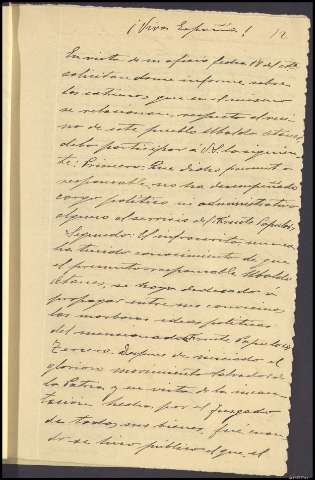 ¡Viva España! 12
En vista de su oficio fecha 18 del
solicitandome informe sobre
los extremos que en el mismo
se relacionan, respecto al veci
no de este pueblo Ubaldo
debo participar á V.S. lo siguien
te: Primero: Que dicho presunto
responsable, no ha desempeñado
cargo politico ni administrativo
alguno al servicio del Frente Popular.
Segundo: El infrascrito nunca
ha tenido conocimiento de que
el presunto responsable Ubaldo
se haya dedicado á
propagar entre sus convecinos
las morbosas ideas politicas
del mencionado Frente Popular
Tercero. Despues de iniciado el
glorioso movimiento Salvador de
la Patria y en vista de la incau
tación hecha, por el Juzgado
de todos sus bienes, fué cuan
do se hizo público que el